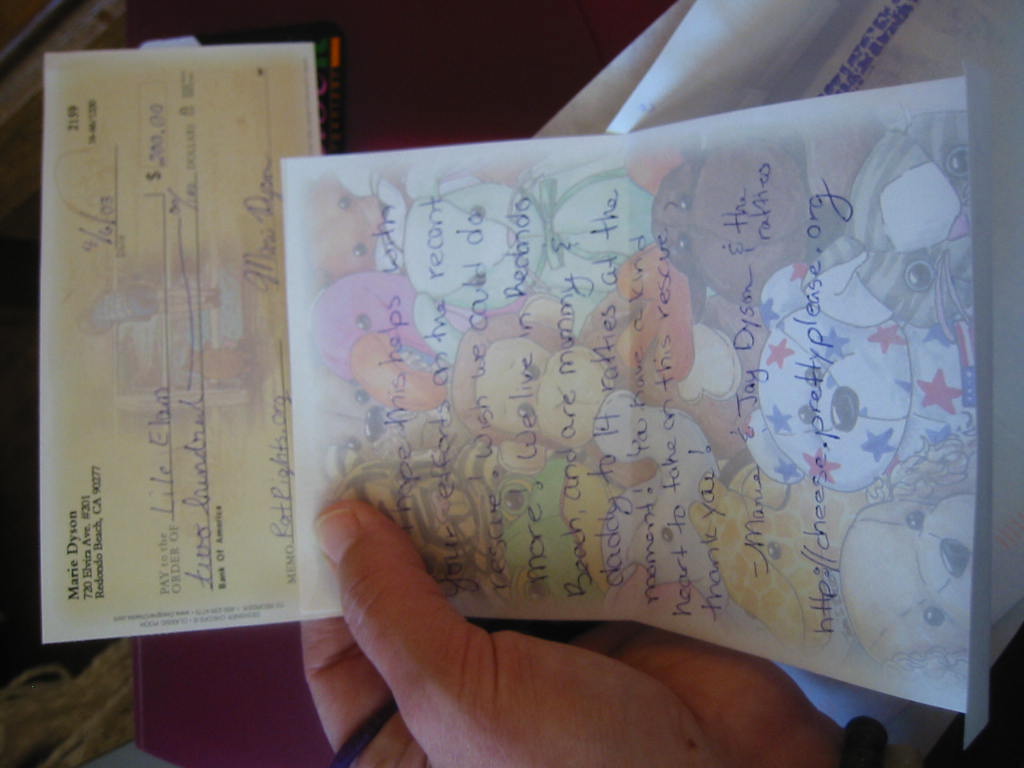 Marie Dyson
720 Elvira Ave. #201
Redondo Beach, CA 90277
2139
9/6/03
DATE
PAY to the
ORDER OF Life Chan $ 200.00
two hundred DOLLARS
Bank Of America
MEMO RatRights.org Marie Dyson
I hope this helps with
your efforts on the recent
rescue. I wish we could do
more. We live in Redondo
Beach, and are mommy &
daddy to 14 ratties at the
moment! You have a kind
heart to take on this rescue.
thank you!
- Marie & Jay Dyson & the
ratties
http://cheese.prettyplease.org